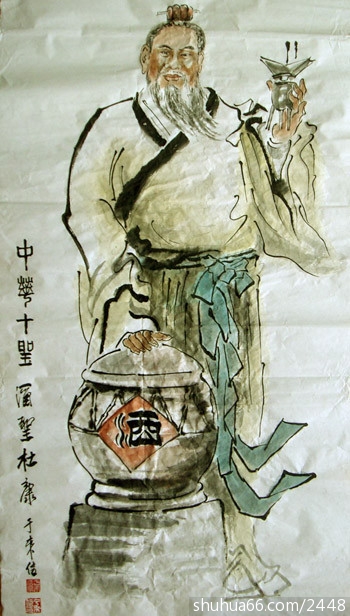 中華十聖 酒聖杜康 于
酒
shuhua66.com/2448